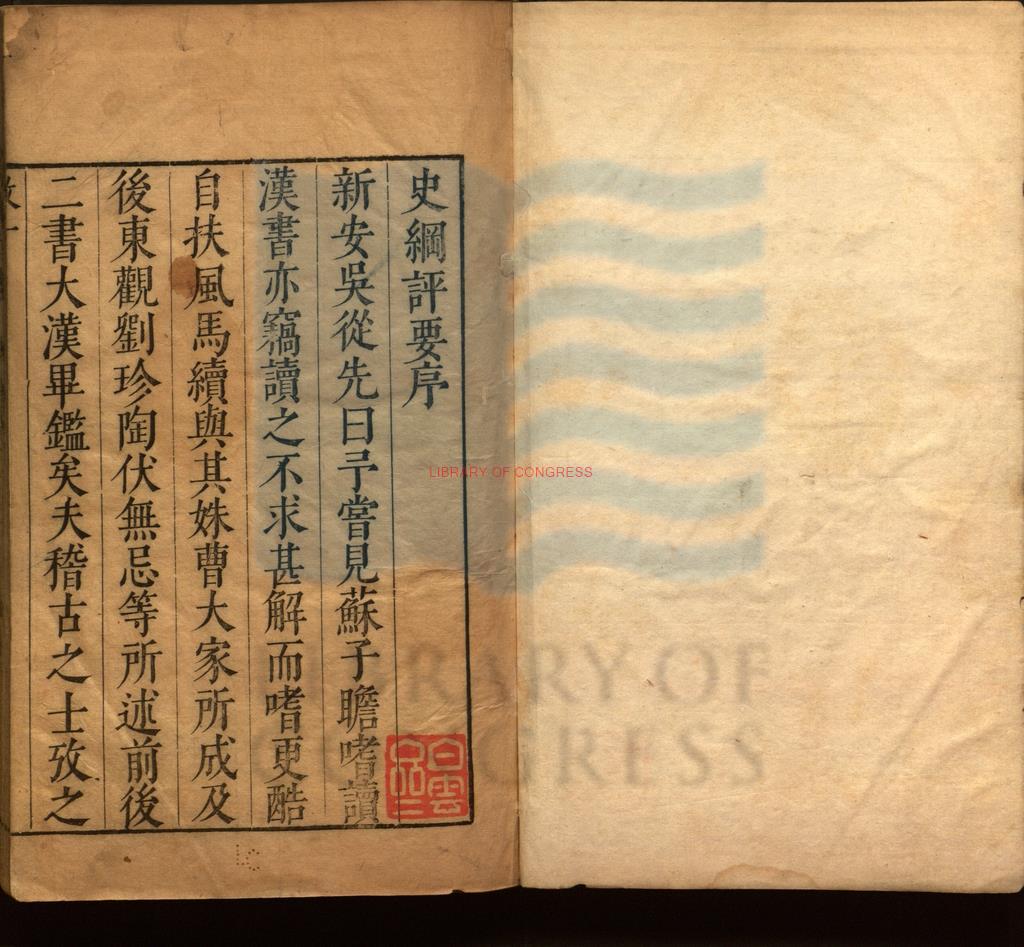 史綱評要序
新安吳從先曰予嘗見蘇子瞻嗜讀
漢書亦竊讀之不求甚解而嗜更酷
自扶風馬續與其姝曹大家所成及
後東觀劉珍陶伏無忌等所述前後
二書大漢畢鑑矣夫稽古之士攷之
白雲
品二
LIBRARY OF CONGRESS
LIBRARY OF
CONGRESS